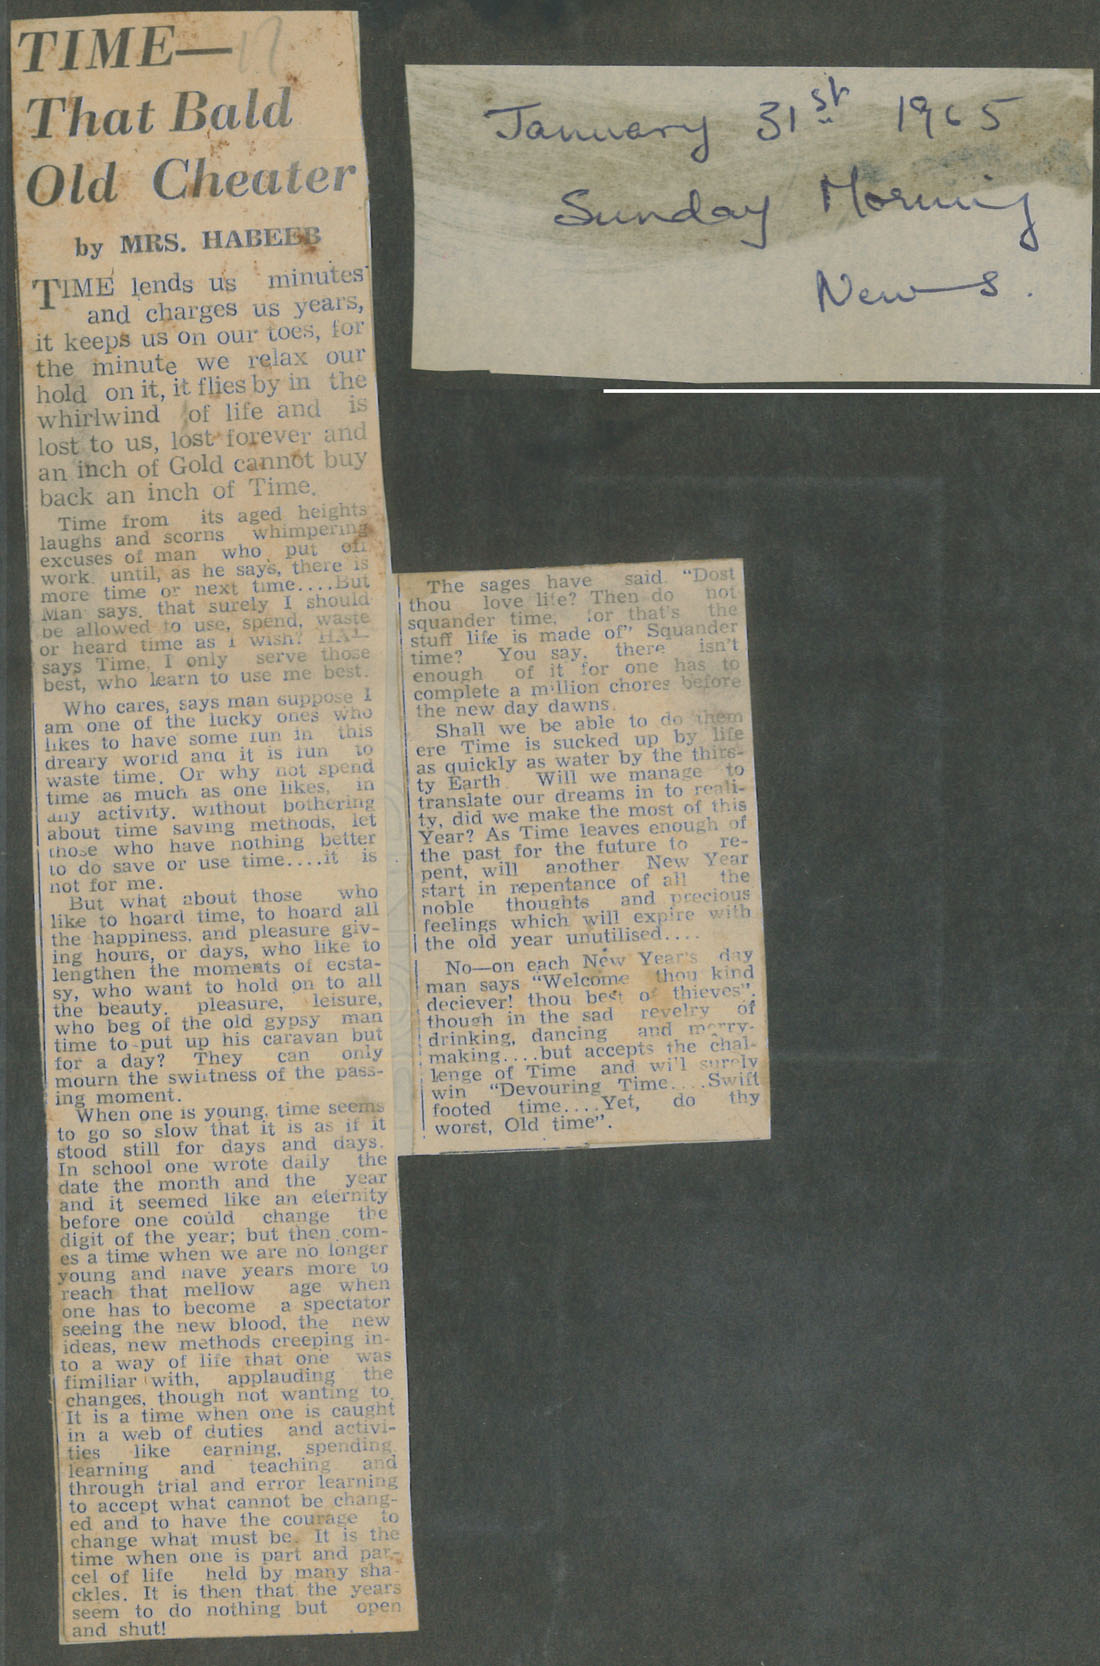 TIME— 17
That Bald
Old Cheater
by MRS. HABEEB
TIME lends us minutes
and charges us years,
it keeps us on our toes, for
the minute we relax our
hold on it, it flies by in the
whirlwind of life and is
lost to us, lost forever and
an inch of Gold cannot buy
back an inch of Time.
Time from its aged heights
laughs and scorns whimpering
excuses of man who put off
work until, as he says, there is
more time or next time....But
Man says, that surely I should
be allowed to use, spend, waste
or heard time as I wish? HA!—
says Time, I only serve those
best, who learn to use me best.
Who cares, says man suppose I
am one of the lucky ones who
likes to have some fun in this
dreary world and it is fun to
waste time. Or why not spend
time as much as one likes, in
any activity, without bothering
about time saving methods, let
those who have nothing better
to do save or use time....it is
not for me.
But what about those who
like to hoard time, to hoard all
the happiness, and pleasure giv-
ing hours, or days, who like to
lengthen the moments of ecsta-
sy, who want to hold on to all
the beauty, pleasure, leisure,
who beg of the old gypsy man
time to put up his caravan but
for a day? They can only
mourn the swiftness of the pass-
ing moment.
When one is young, time seems
to go so slow that it is as if it
stood still for days and days.
In school one wrote daily the
date the month and the year
and it seemed like an eternity
before one could change the
digit of the year; but then com-
es a time when we are no longer
young and have years more to
reach that mellow age when
one has to become a spectator
seeing the new blood, the new
ideas, new methods creeping in-
to a way of life that one was
fimiliar with, applauding the
changes, though not wanting to.
It is a time when one is caught
in a web of duties and activi-
ties like earning, spending,
learning and teaching and
through trial and error learning
to accept what cannot be chang-
ed and to have the courage to
change what must be. It is the
time when one is part and par-
cel of life held by many sha-
ckles. It is then that the years
seem to do nothing but open
and shut!
The sages have said. "Dost
thou love life? Then do not
squander time, for that's the
stuff life is made of" Squander
time? You say, there isn't
enough of it for one has to
complete a million chores before
the new day dawns.
Shall we be able to do them
ere Time is sucked up by life
as quickly as water by the thirs-
ty Earth. Will we manage to
translate our dreams in to reali-
ty, did we make the most of this
Year? As Time leaves enough of
the past for the future to re-
pent, will another New Year
start in repentance of all the
noble thoughts and precious
feelings which will expire with
the old year unutilised....
No—on each New Year's day
man says "Welcome thou kind
deciever! thou best of thieves",
though in the sad revelry of
drinking, dancing and merry-
making....but accepts the chal-
lenge of Time and will surely
win "Devouring Time....Swift
footed time....Yet, do thy
worst, Old time".
January 31st 1965
Sunday Morning
News.